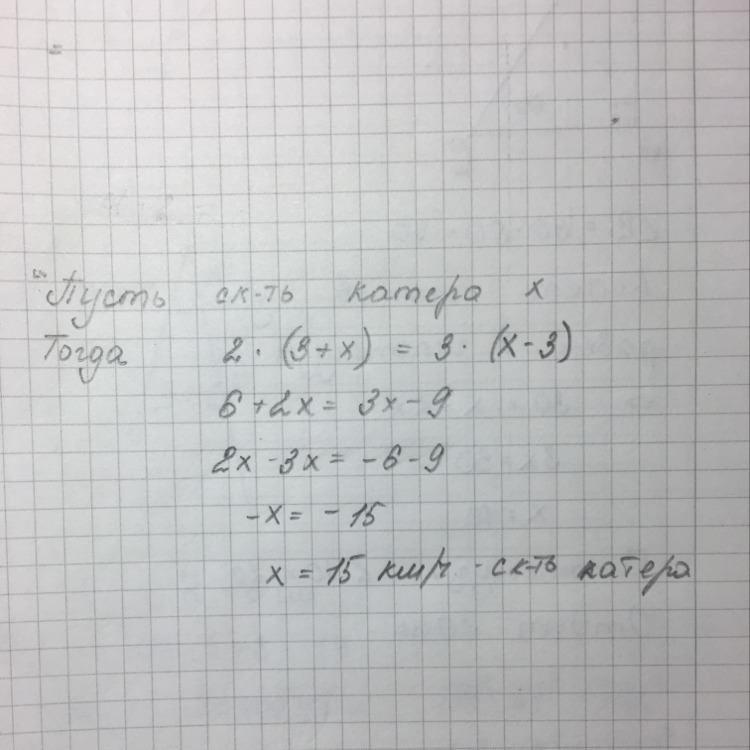 "Пусть ск-ть катера x
Тогда 2 · (3 + x) = 3 · (x - 3)
6 + 2x = 3x - 9
2x - 3x = - 6 - 9
- x = - 15
x = 15 км/ч - ск-ть катера